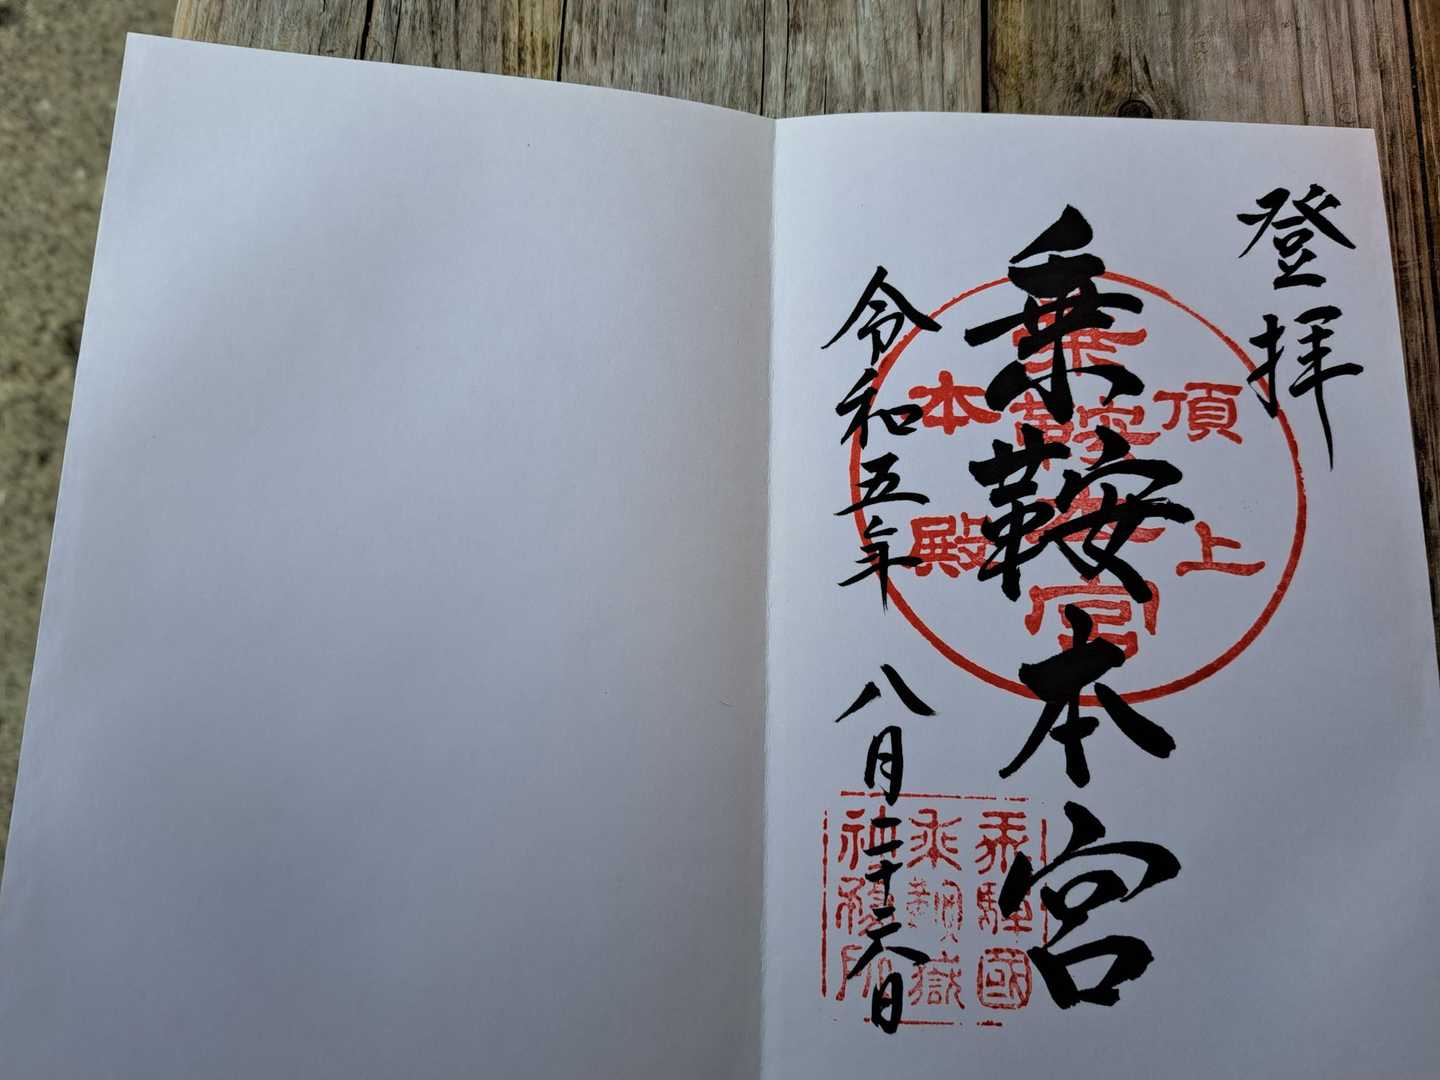 登拝
乗鞍本宮
令和五年 八月二十六日
頂上
乗鞍本宮
本殿
飛驒國
乗鞍嶽
社務所